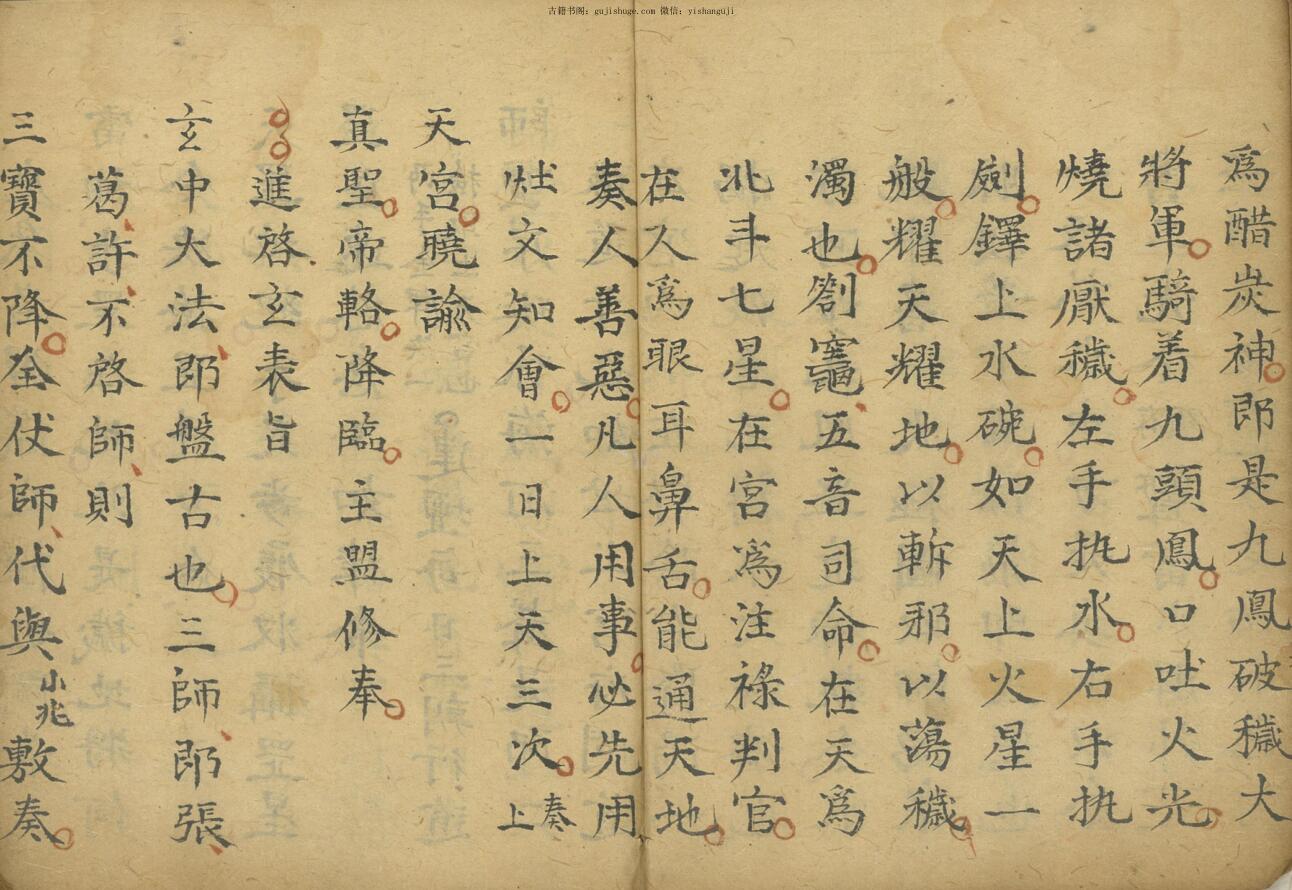 古籍书阁：gujishuge.com 微信：yishanguji
爲醋炭神。即是九鳳破穢大
將軍。騎着九頭鳳。口吐火光。
燒諸厭穢。左手执水。右手执
劍。鐸上水碗。如天上火星一
般。耀天耀地。以斬邪。以蕩穢。
濁也。劉竈、五音司命。在天爲
北斗七星。在宮爲注祿判官。
在人爲眼耳鼻舌。能通天地。
奏人善惡。凡人用事。必先用
灶文知會。一日上天三次。上奏
天宮。曉諭
真聖。帝輅。降臨。主盟修奉。
進啓玄表旨
玄中大法、即盤古也。三師、即張、
葛、許、不啓師、則
三寶不降。全仗師、代與小兆敷奏。